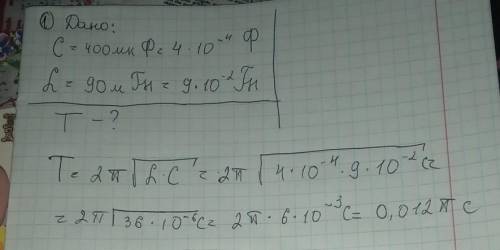 ① Дано:
C = 400 мк Ф = 4 · 10⁻⁴ Ф
L = 90 м Гн = 9 · 10⁻² Гн
T - ?
T = 2π √L · C = 2π √4 · 10⁻⁴ · 9 · 10⁻² c =
= 2π √36 · 10⁻⁶ c = 2π · 6 · 10⁻³ c = 0,012 π c